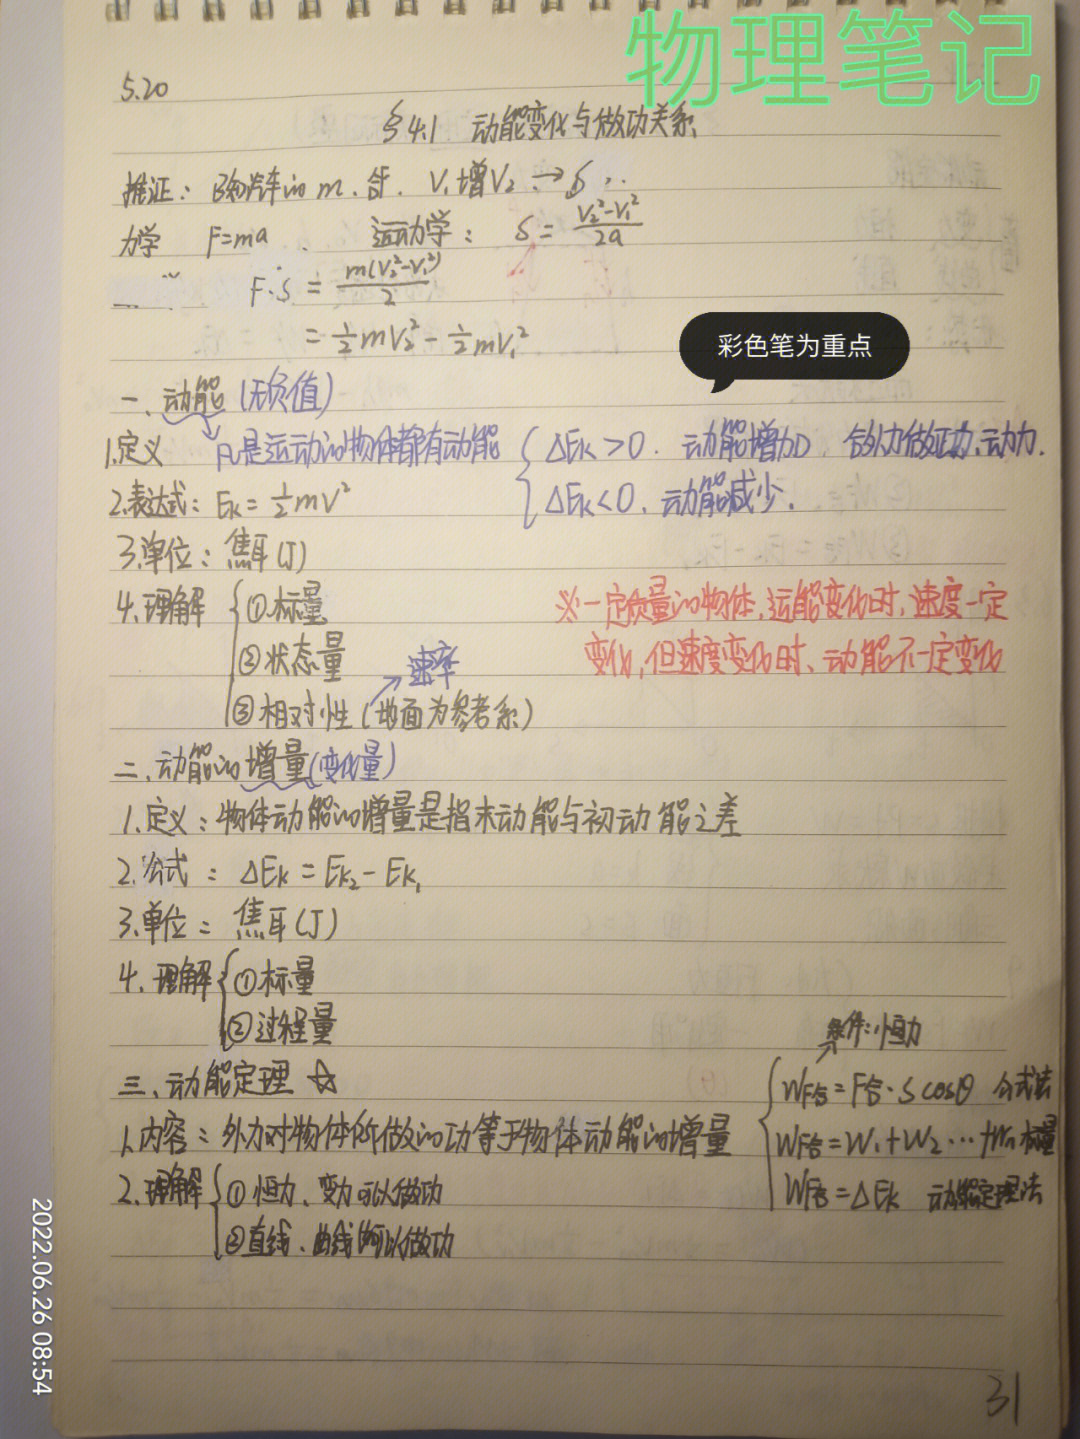 物理笔记
5.20
§4.1 动能变化与做功关系
推证：已知汽车的m.合. V₁增V₂ → S..
力学 F=ma. 运动学： S=(V₂²-V₁²)/2a
F·S = m(V₂²-V₁²)/2
= ½mV₂² - ½mV₁²
彩色笔为重点
一、动能(无负值)
1.定义 凡是运动的物体都有动能 { ΔEk>0. 动能增加 合外力做正功、动力.
2.表达式：Ek=½mV² ΔEk<0、动能减少.
3.单位：焦耳(J)
4.理解 { ①标量
②状态量
速率
③相对性(地面为参考系)
※一定质量的物体,运能变化时,速度一定
变化,但速度变化时、动能不一定变化
二、动能的增量(变化量)
1.定义：物体动能的增量是指末动能与初动能之差
2.公式：ΔEk=Ek₂-Ek₁
3.单位：焦耳(J)
4.理解 { ①标量
②过程量
三、动能定理 ☆
1.内容：外力对物体所做的功等于物体动能的增量
2.理解 { ①恒力、变力可以做功
②直线、曲线都可以做功
条件：恒力
WF合=F合·S cosθ 公式法
WF合=W₁+W₂…+Wn 标量
WF合=ΔEk 动能定理法
2022.06.26 08:54
31